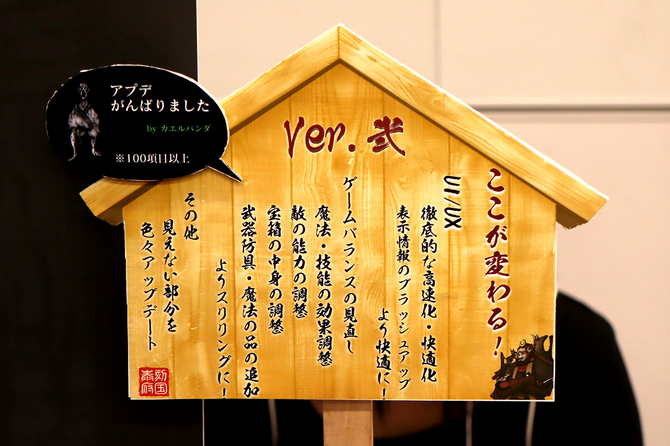 Ver.弐
ここが変わる!
UI/UX
徹底的な高速化・快適化
表示情報のブラッシュアップ
より快適に!
ゲームバランスの見直し
魔法・技能の効果調整
敵の能力の調整
宝箱の中身の調整
武器防具・魔法の品の追加
よりスリリングに!
その他
見えない部分を
色々アップデート
アプデ
がんばりました
by カエルパンダ
※100項目以上